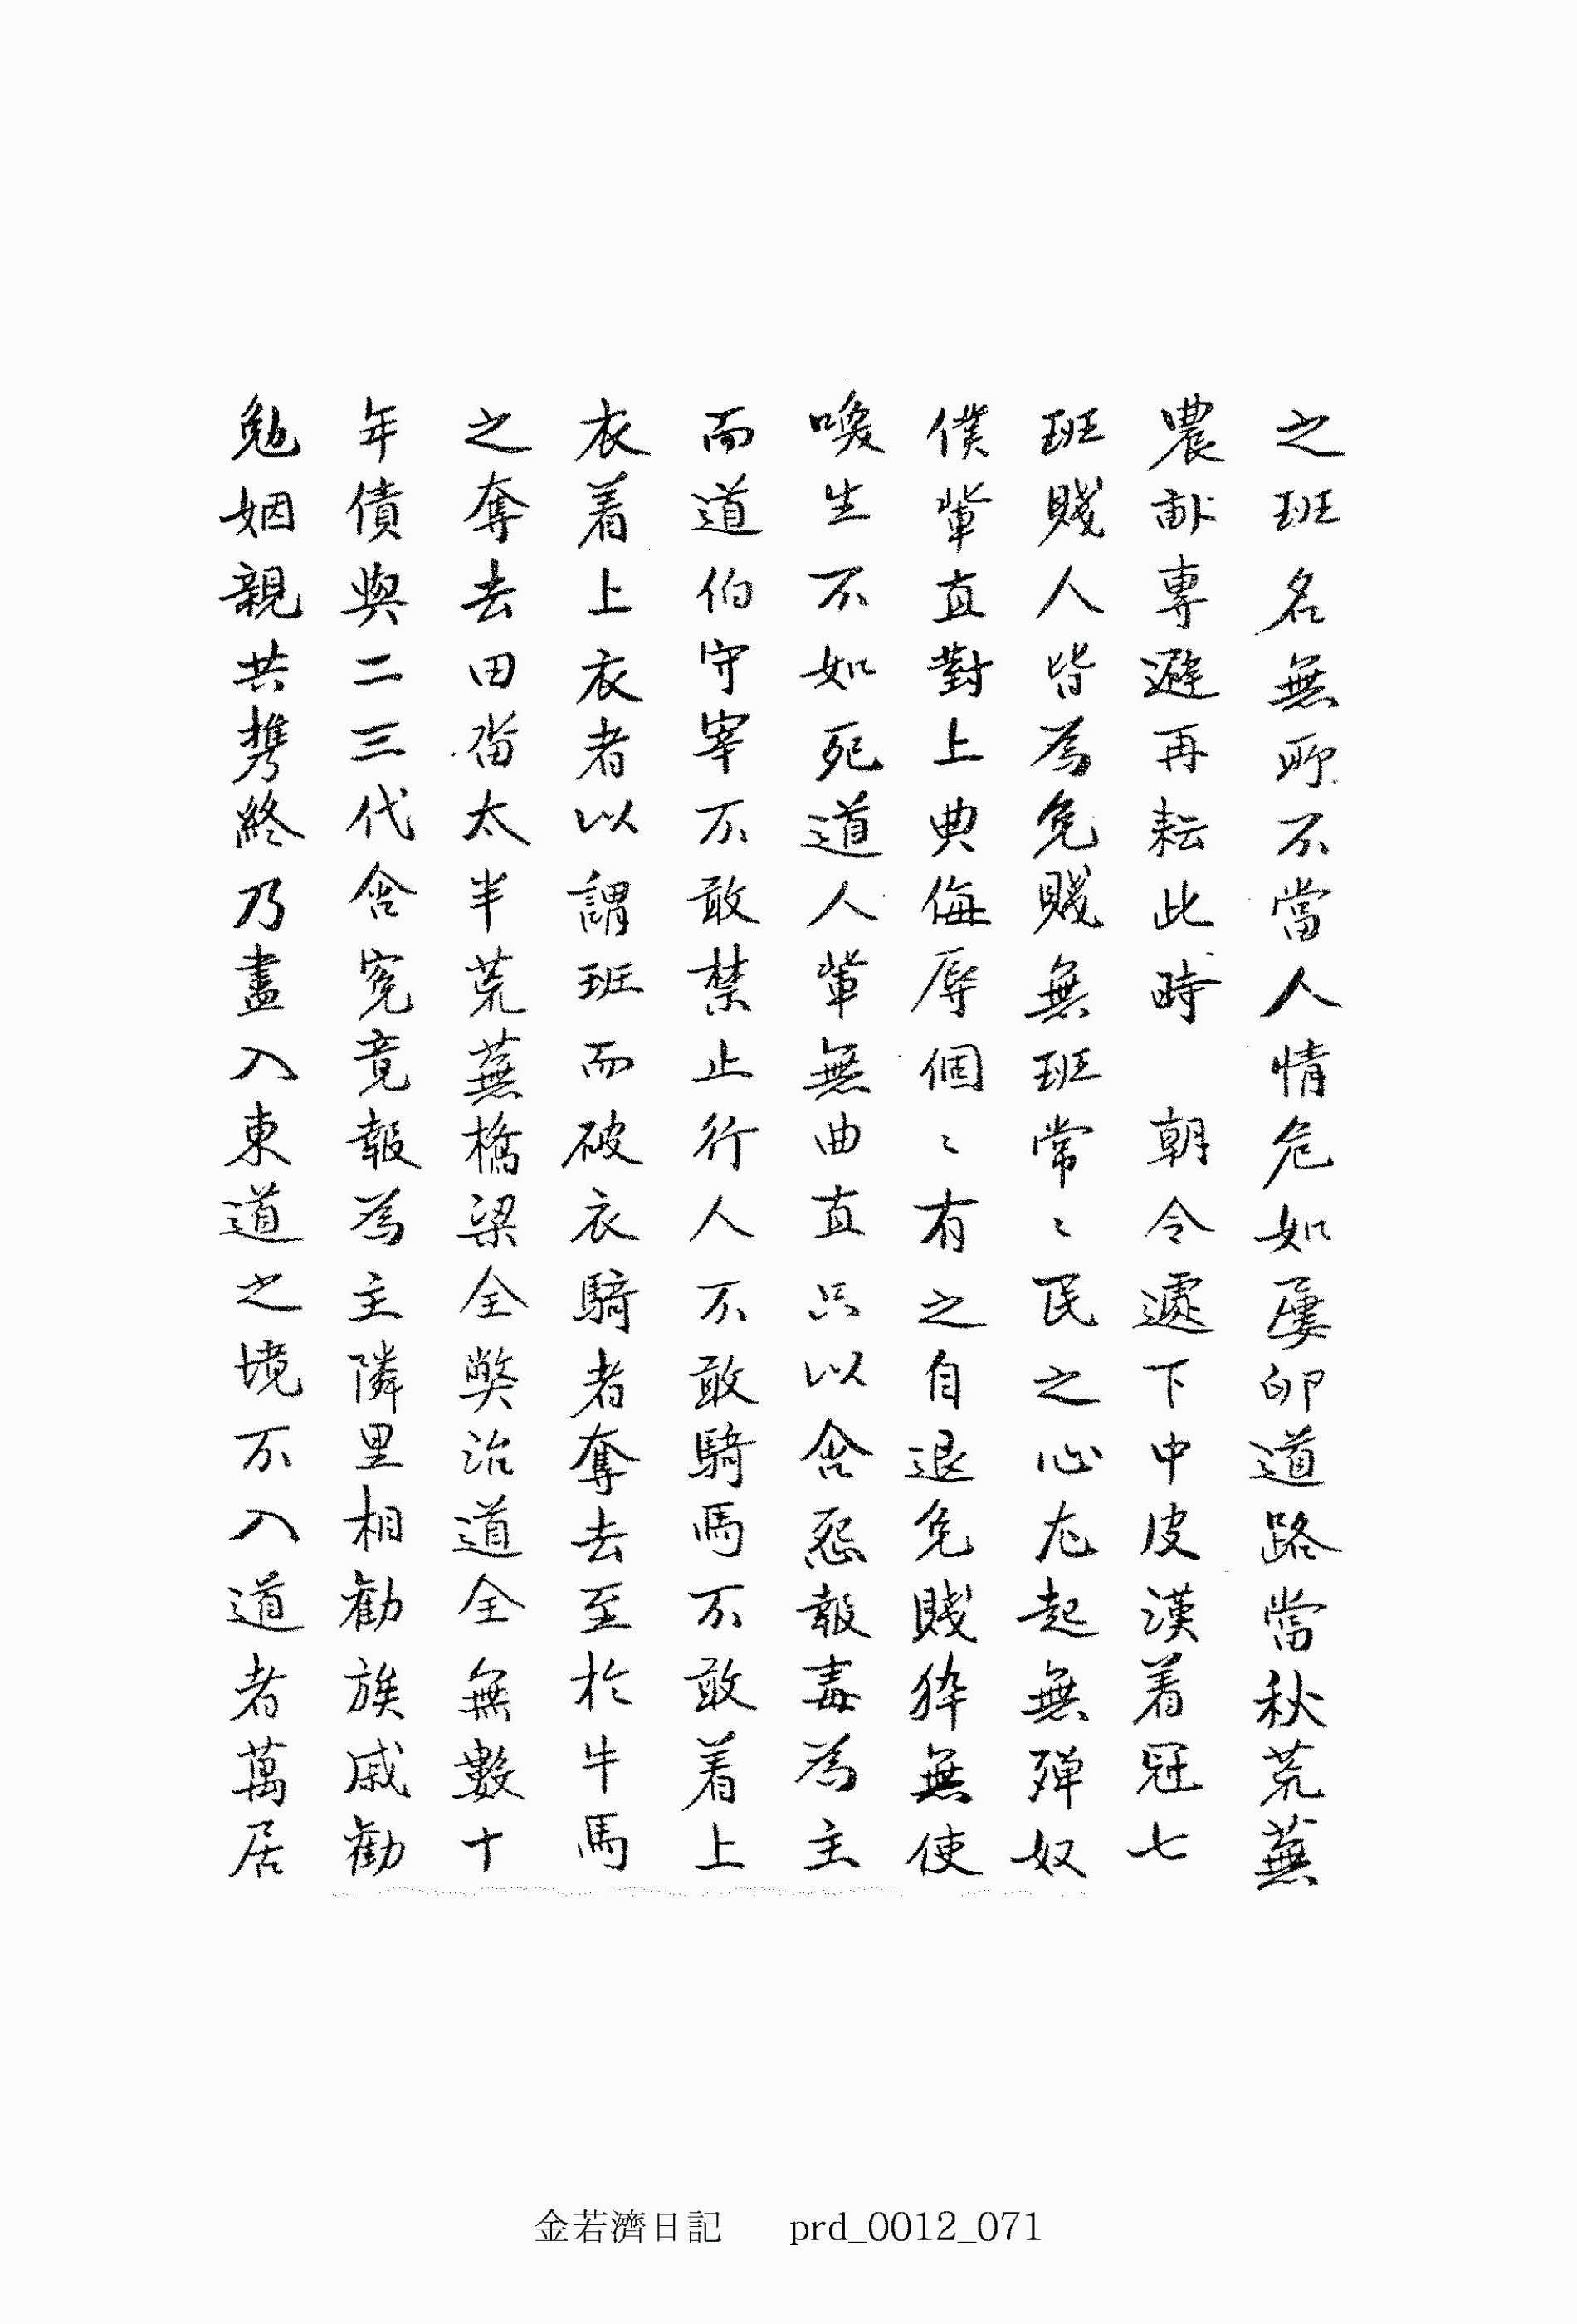 之班名無所不當人情危如屢卵道路當秋荒蕪
農畝專避再耘此時　朝令遽下中皮漢着冠七
班賤人皆為免賤無班常〻民之心尤起無殫奴
僕輩直對上典侮辱個〻有之自退免賤猝無使
喚生不如死道人輩無曲直只以含怨報毒為主
而道伯守宰不敢禁止行人不敢騎馬不敢着上
衣着上衣者以謂班而破衣騎者奪去至於牛馬
之奪去田畓太半荒蕪橋梁全獘治道全無數十
年債與二三代含寃竟報為主隣里相勸族戚勸
勉姻親共携終乃盡入東道之境不入道者萬居
金若濟日記 prd_0012_071